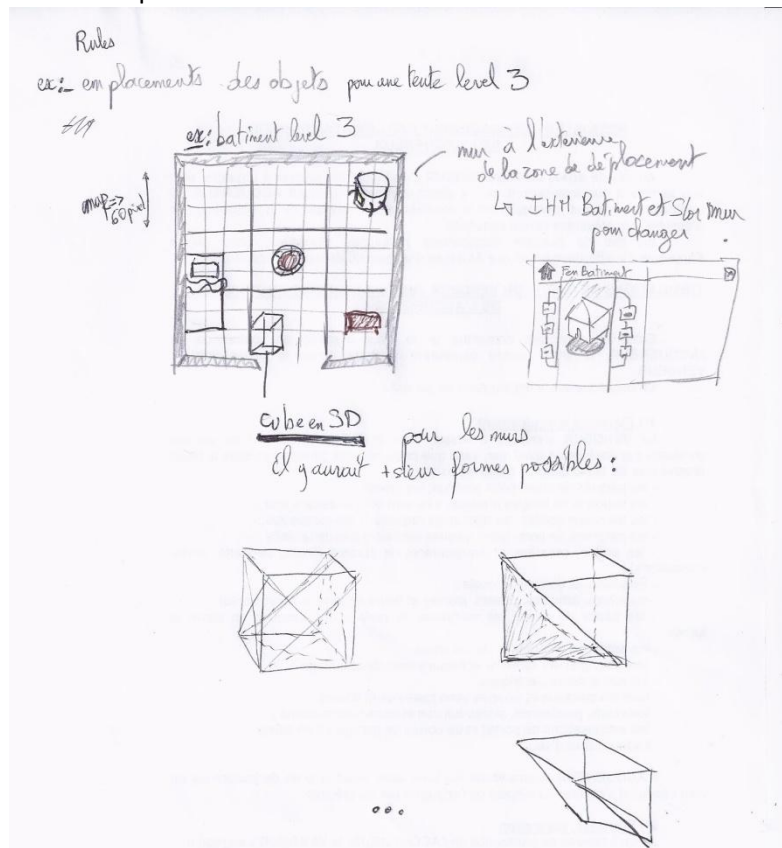 Rules
ex:- emplacements des objets pour une tente level 3
ex: batiment level 3
mur à l'exterieur
de la zone de déplacement
↳ IHM Batiment et Slor mur
pour changer.
60 pixel
Fen Batiment
cube en 3D pour les murs
Il y aurait +sieur formes possibles:
...